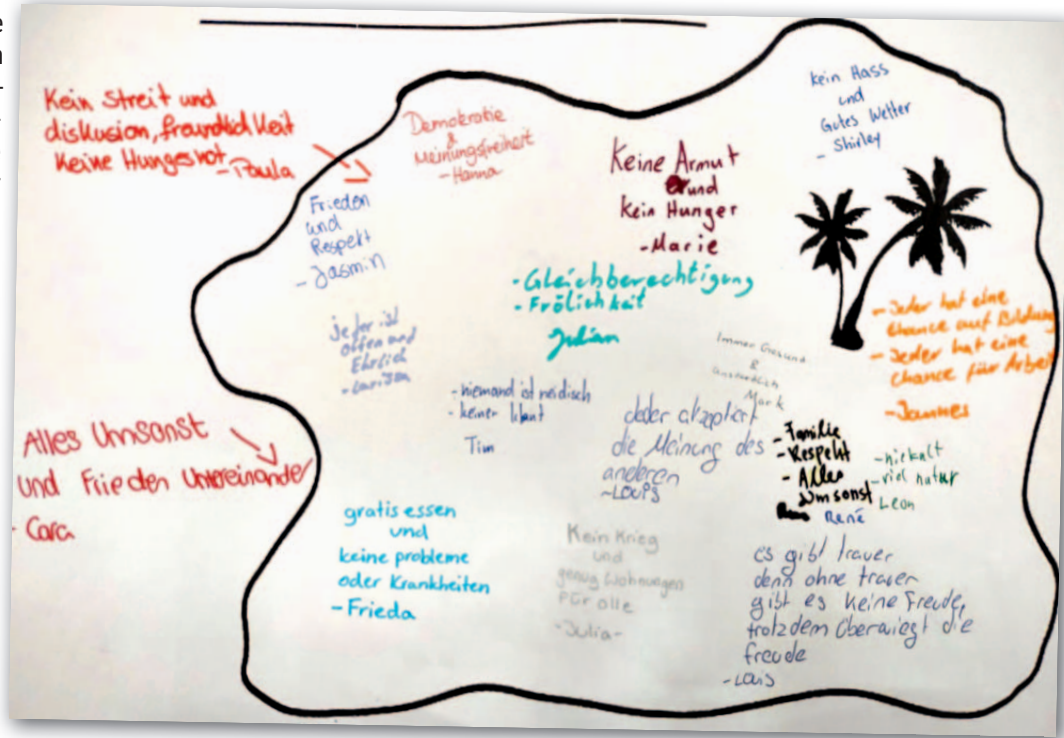 Kein Streit und
diskusion, freundlichkeit
Keine Hungesnot
- Paula
Demokratie
&
Meinungsfreiheit
- Hanna
Keine Armut
und
Kein Hunger
- Marie
kein Hass
und
Gutes Wetter
- Shirley
Frieden
und
Respekt
- Jasmin
- Gleichberechtigung
- Frölichkeit
Julian
- Jeder hat eine
Chance auf Bildung
- Jeder hat eine
chance für Arbeit
- Jannes
jeder ist
offen und
Ehrlich
- Larissa
Immer Gesund
&
unsterblich
Mark
- niemand ist neidisch
- keiner klaut
Tim
Jeder akzeptiert
die Meinung des
anderen
~ Louis
- Familie
- Respekt
- Alles
Umsonst
René
- nie kalt
- viel natur
Leon
Alles Umsonst
und Frieden Untereinander
- Cara
gratis essen
und
keine probleme
oder Krankheiten
- Frieda
Kein Krieg
und
genug Wohnungen
Für alle
- Julia -
es gibt trauer
denn ohne trauer
gibt es keine Freude,
trotzdem überwiegt die
freude
- Louis